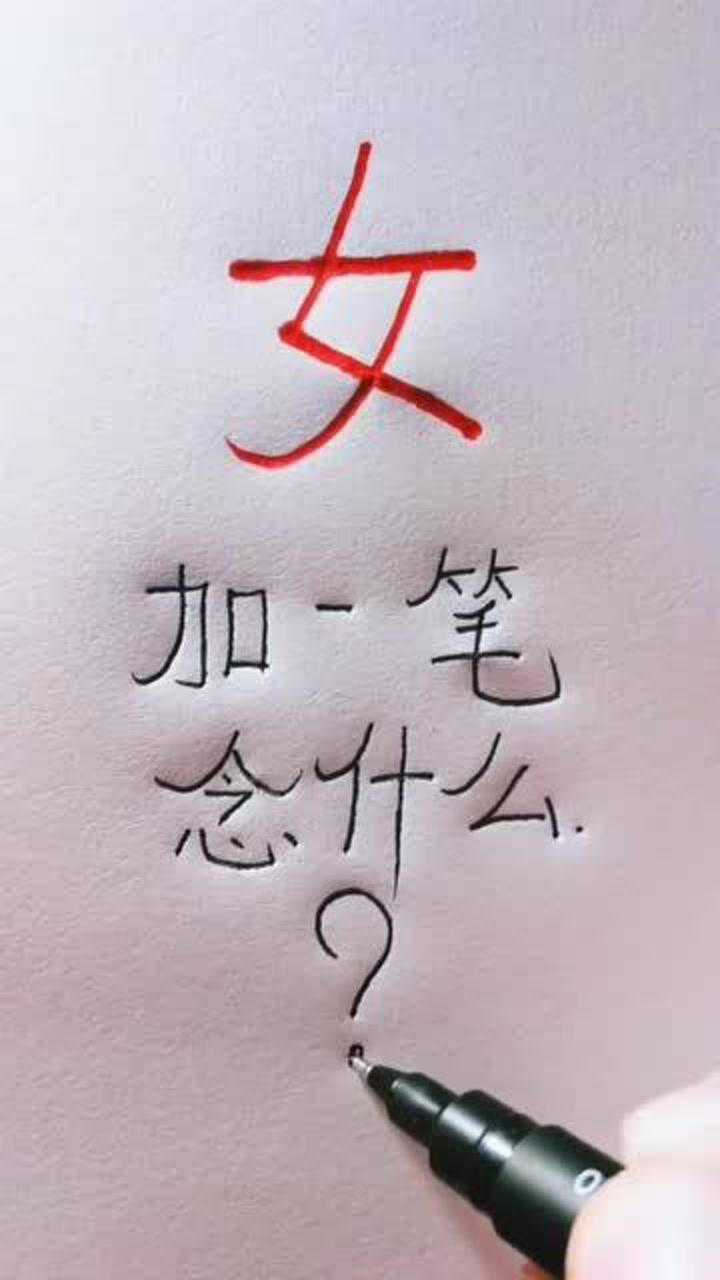 女
加一笔
念什么.
?